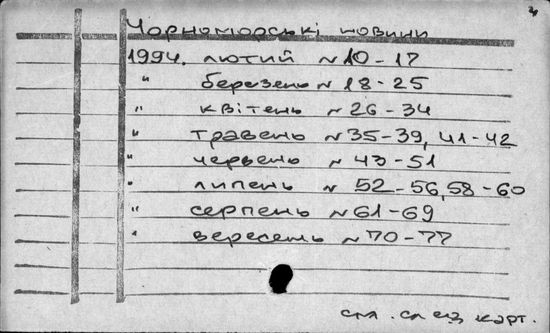 Чорноморські новини
1994. лютий N 10-17
" березень N 18-25
" квітень N 26-34
" травень N 35-39, 41-42
" червень N 43-51
" липень N 52-56, 58-60
" серпень N 61-69
" вересень N 70-77
карт.